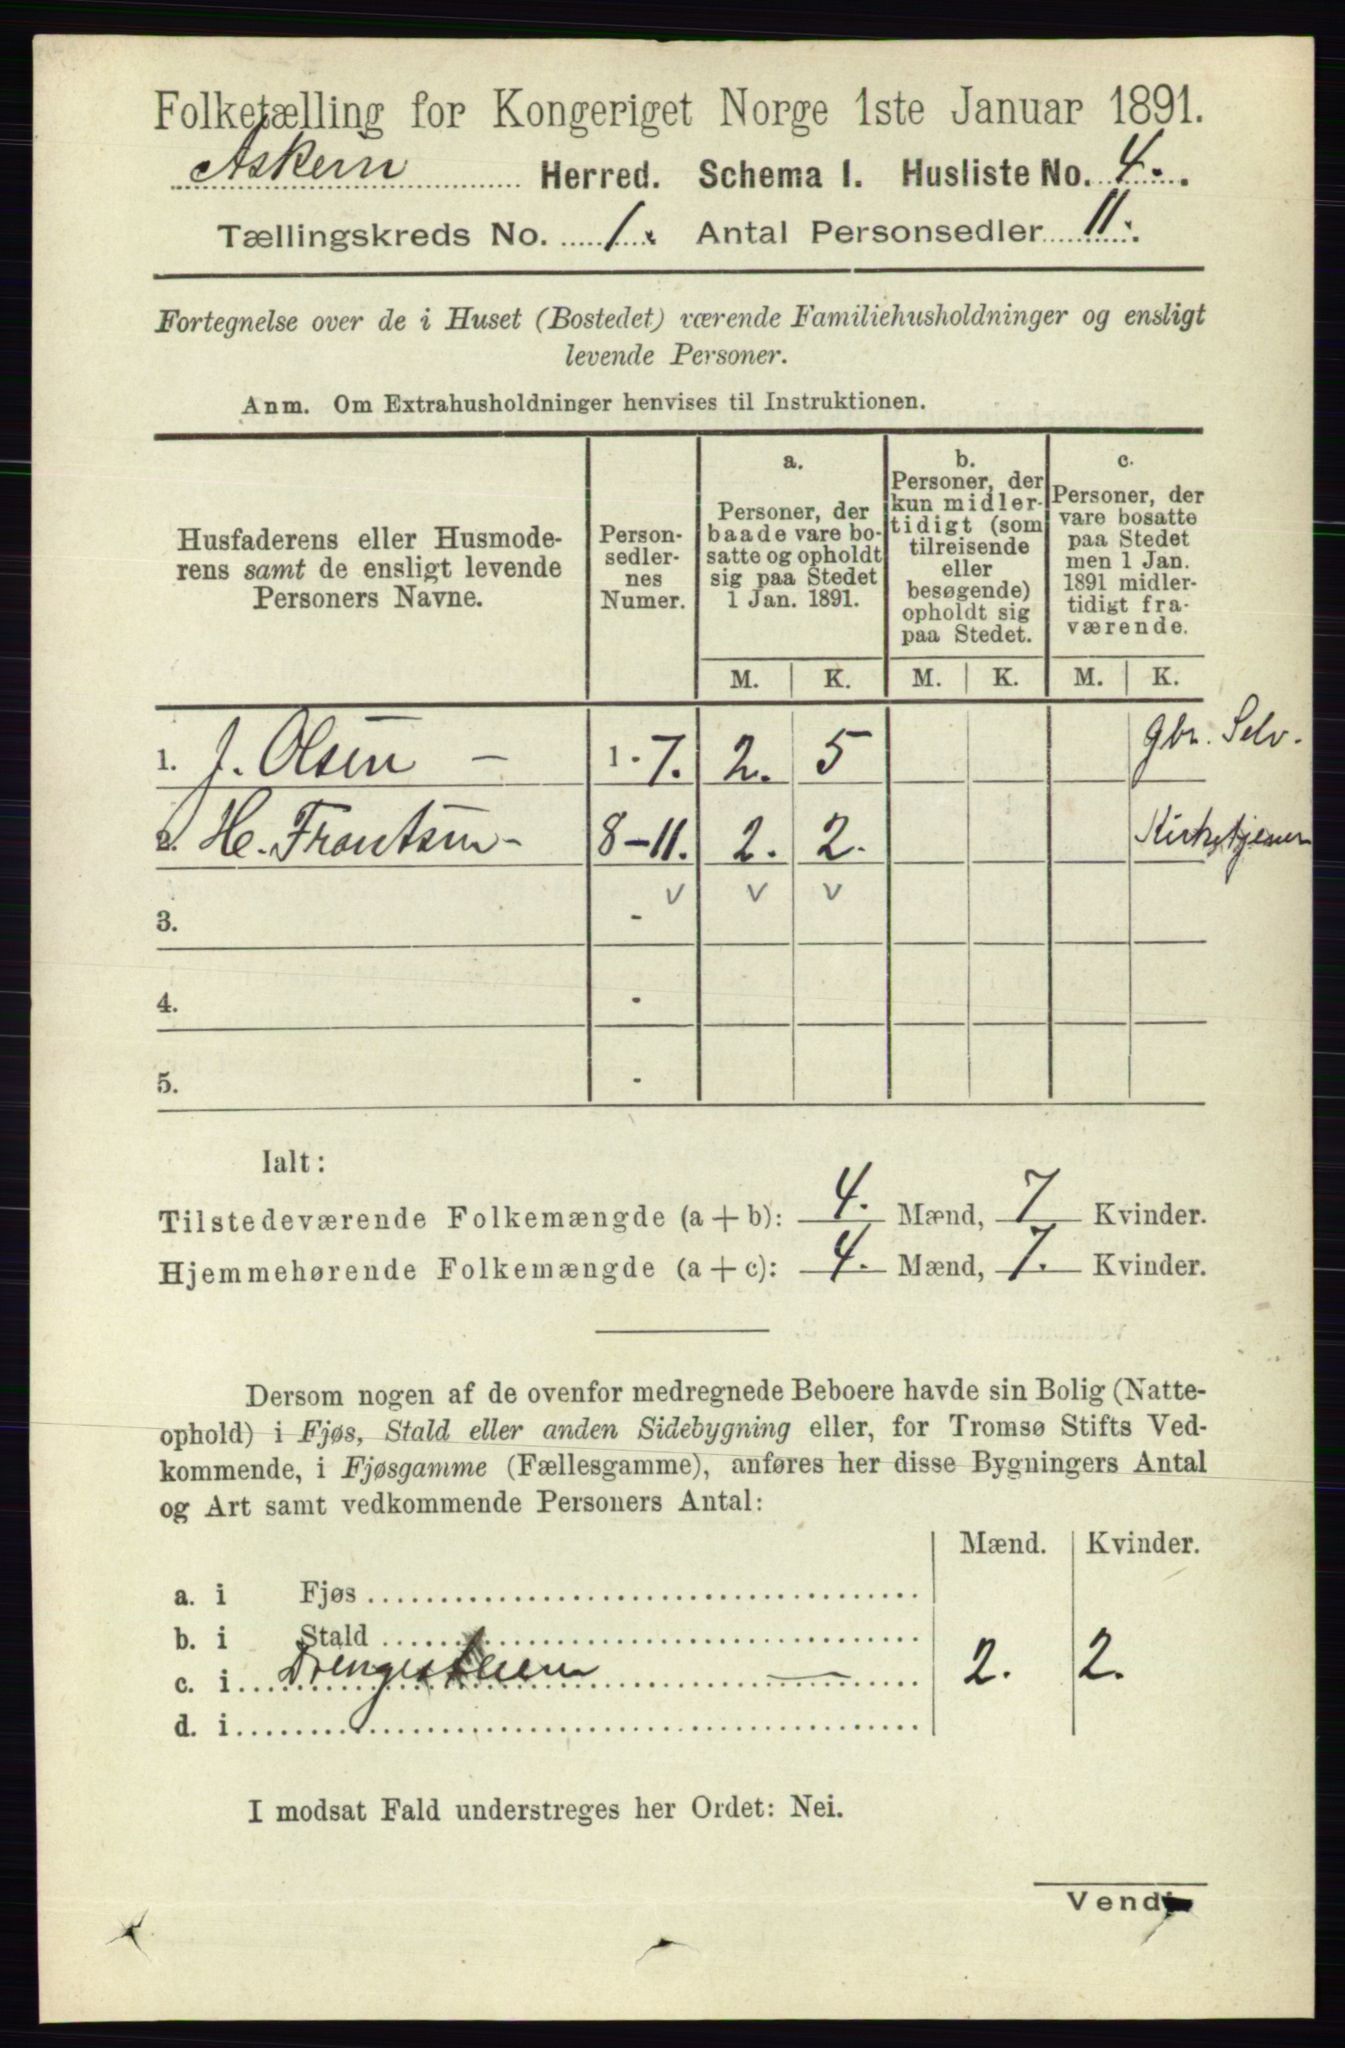 Folketælling for Kongeriget Norge 1ste Januar 1891.
Askein Herred. Schema I. Husliste No. 4.
Tællingskreds No. 1. Antal Personsedler 11.
Fortegnelse over de i Huset (Bostedet) værende Familiehusholdninger og ensligt
levende Personer.
Anm. Om Extrahusholdninger henvises til Instruktionen.
Husfaderens eller Husmode-
rens samt de ensligt levende
Personers Navne.
Person-
sedler-
nes
Numer.
a.
Personer, der
baade vare bo-
satte og opholdt
sig paa Stedet
1 Jan. 1891.
b.
Personer, der
kun midler-
tidigt (som
tilreisende
eller
besøgende)
opholdt sig
paa Stedet.
c.
Personer, der
vare bosatte
paa Stedet
men 1 Jan.
1891 midler-
tidigt fra-
værende.
M. K. M. K. M. K.
1. J. Olsen - 1 - 7. 2. 5 gbr. Selv.
2. H. Frantsen - 8-11. 2. 2. Kirketjener
v v v
3. -
4. -
5. -
Ialt:
Tilstedeværende Folkemængde (a + b): 4. Mænd, 7 Kvinder.
Hjemmehørende Folkemængde (a + c): 4. Mænd, 7. Kvinder.
Dersom nogen af de ovenfor medregnede Beboere havde sin Bolig (Natte-
ophold) i Fjøs, Stald eller anden Sidebygning eller, for Tromsø Stifts Ved-
kommende, i Fjøsgamme (Fællesgamme), anføres her disse Bygningers Antal
og Art samt vedkommende Personers Antal:
Mænd. Kvinder.
a. i Fjøs
b. i Stald
c. i 2. 2.
d. i
I modsat Fald understreges her Ordet: Nei.
Vend